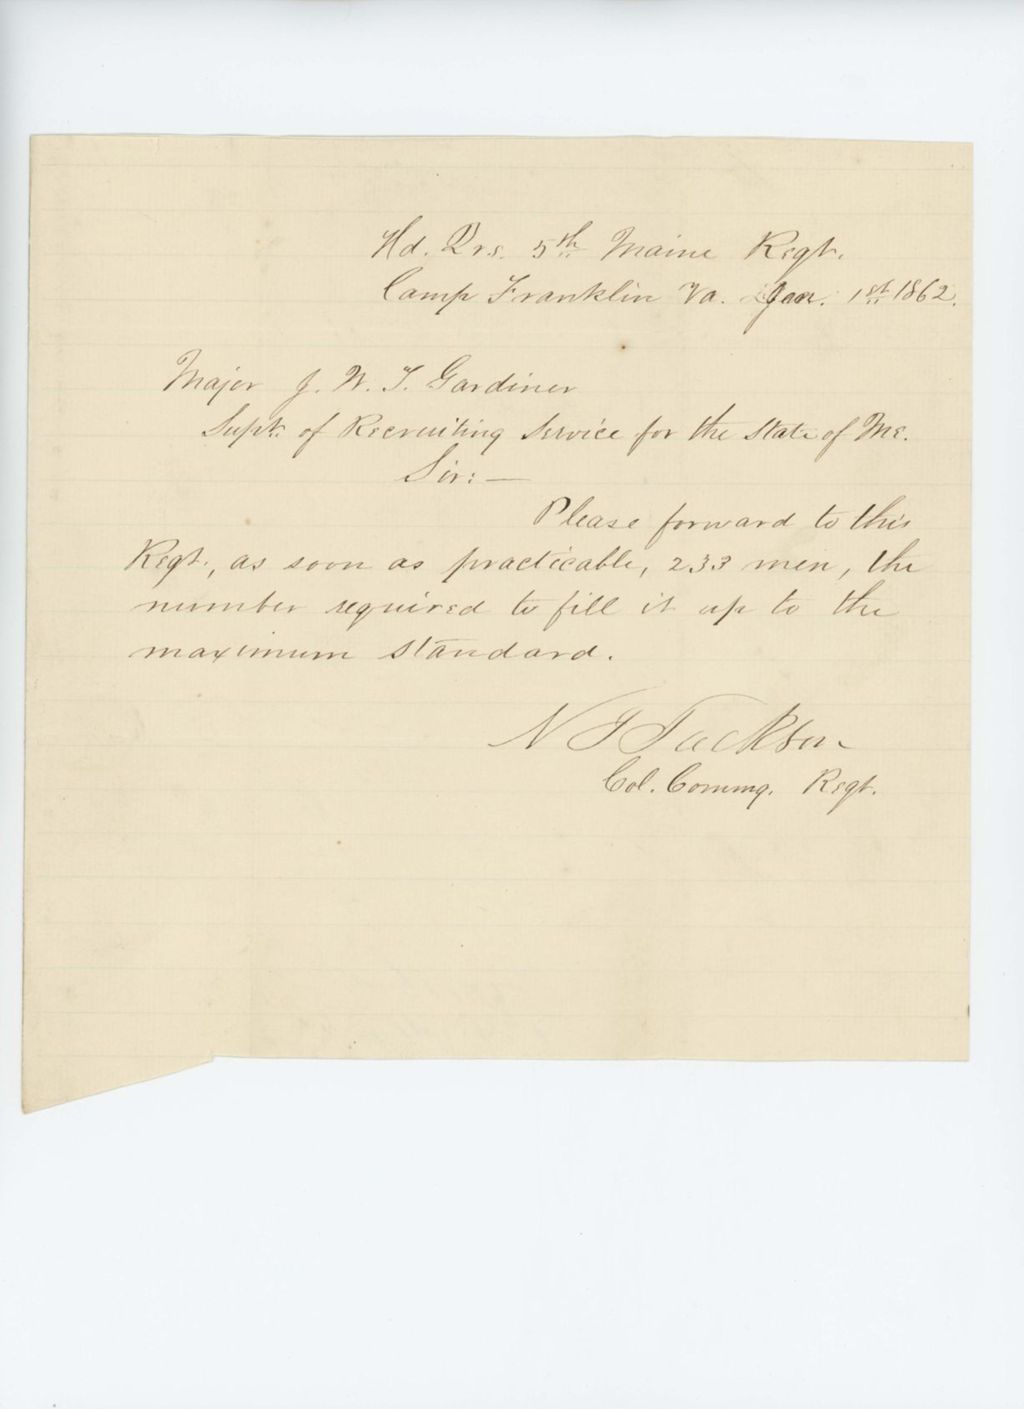 Hd. Qrs. 5th Maine Regt.
Camp Franklin Va. Jan. 1st 1862.
Major J. W. T. Gardiner
Supt. of Recruiting Service for the State of Me.
Sir: —
Please forward to this
Regt., as soon as practicable, 233 men, the
number required to fill it up to the
maximum standard.
N J Jackson
Col. Commg. Regt.